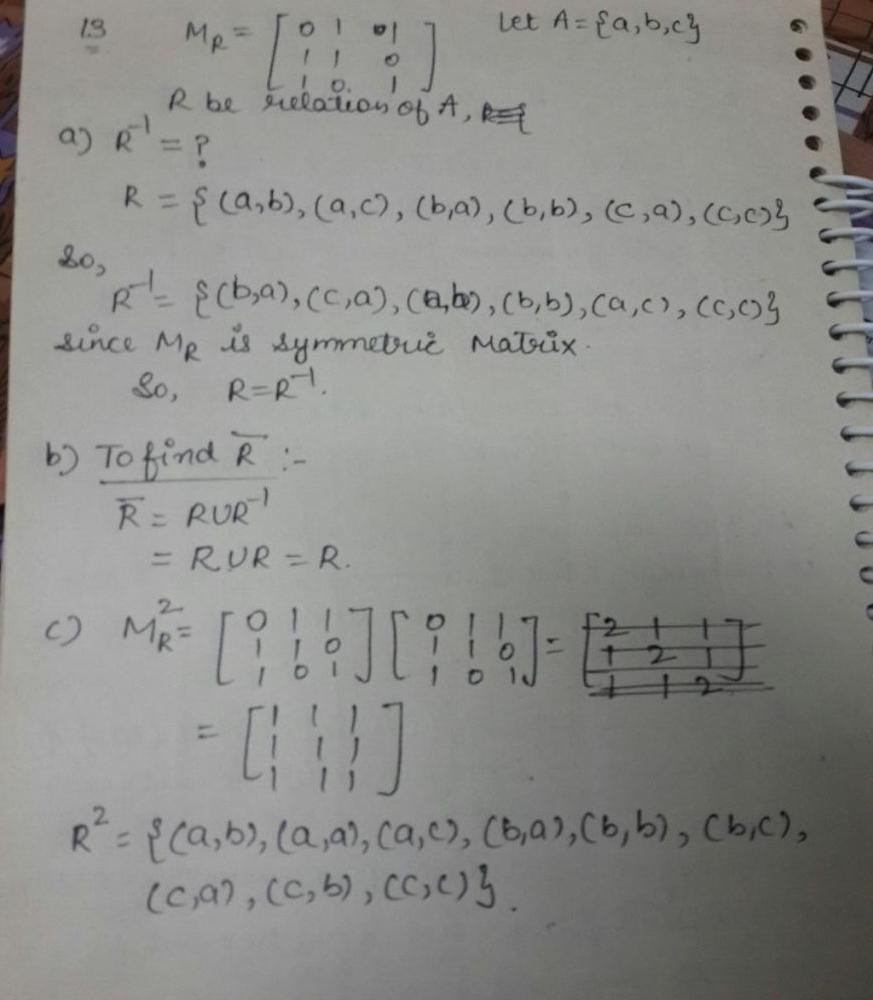 13 M_R = [ 0 1 1 Let A = {a,b,c}
1 1 0
1 0 1 ]
R be relation of A,
a) R⁻¹ = ?
R = {(a,b), (a,c), (b,a), (b,b), (c,a), (c,c)}
So,
R⁻¹ = {(b,a), (c,a), (a,b), (b,b), (a,c), (c,c)}
since M_R is symmetric Matrix.
So, R = R⁻¹.
b) To find R̅ :-
R̅ = R∪R⁻¹
= R∪R = R.
c) M_R² = [ 0 1 1 ] [ 0 1 1 ] = [ 2 1 1 ]
1 1 0 1 1 0 1 2 1
1 0 1 1 0 1 1 1 2
= [ 1 1 1 ]
1 1 1
1 1 1
R² = {(a,b), (a,a), (a,c), (b,a), (b,b), (b,c),
(c,a), (c,b), (c,c)}.